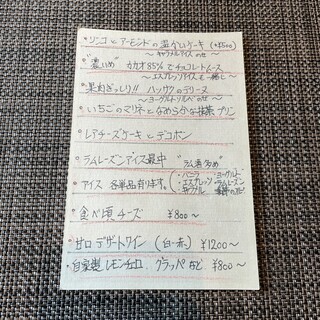 ・リンゴとアーモンドの温かいケーキ (+¥500)
〜キャラメルアイスのせ〜
・"濃いめ" カカオ85%でチョコレートムース
〜エスプレッソアイスと一緒に〜
・果肉ぎっしり!! ハッサクのテリーヌ
〜ヨーグルトソルベのせ〜
・いちごのマリネとなめらかな抹茶プリン
・レアチーズケーキとデコポン
・ラムレーズンアイス最中 "ラム酒多め"
・アイス 各単品有ります。
・バニラ ・ヨーグルト
・エスプレッソ ・ラムレーズン
・キャラメル
・食べ頃チーズ ¥800〜
・甘口デザートワイン (白・赤) ¥1200〜
・自家製レモンチェロ グラッパ など ¥800〜